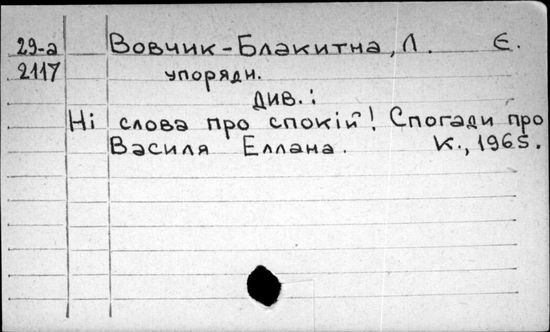 29-а Вовчик-Блакитна, Л. Є.
2117 упорядн.
див.:
Ні слова про спокій! Спогади про
Василя Еллана. К., 1965.